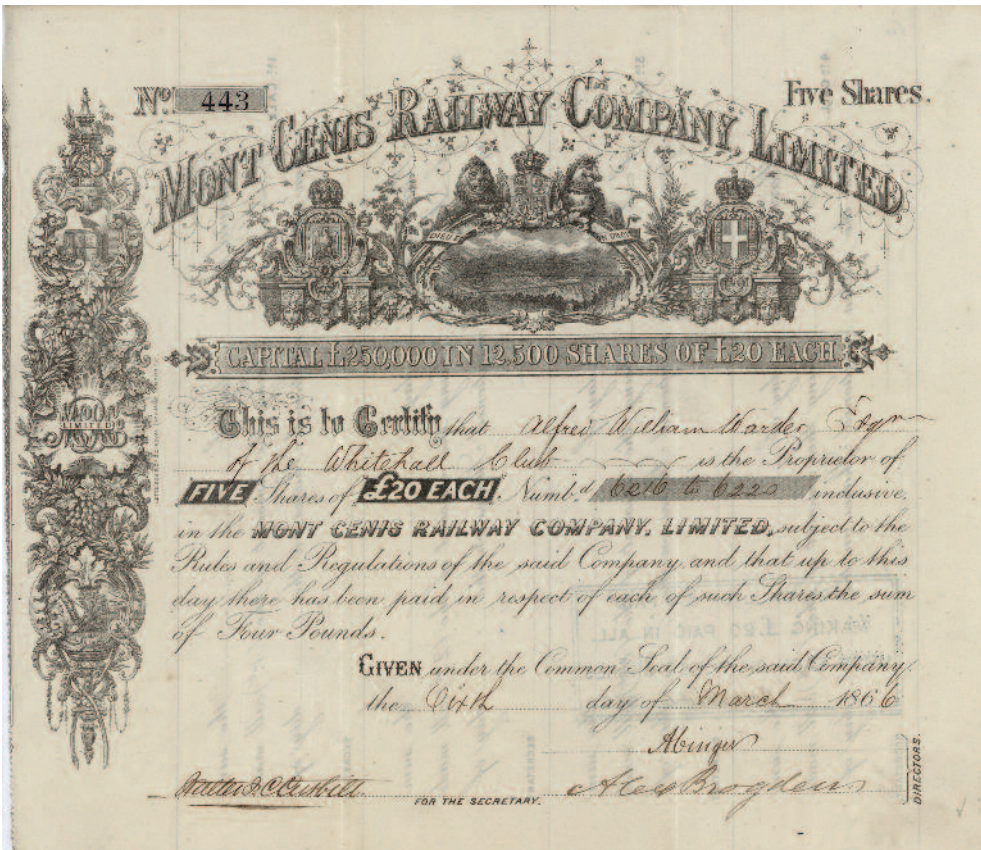 No. 443
Five Shares.
MONT CENIS RAILWAY COMPANY, LIMITED.
DIEU ET
CAPITAL £250,000 IN 12,500 SHARES OF £20 EACH.
This is to Certify that Alfred William Warder Esqr
of the Whitehall Club is the Proprietor of
FIVE Shares of £20 EACH. Numbd. 6216 to 6220 inclusive.
in the MONT CENIS RAILWAY COMPANY, LIMITED, subject to the
Rules and Regulations of the said Company, and that up to this
day there has been paid in respect of each of such Shares, the sum
of Four Pounds.
GIVEN under the Common Seal of the said Company,
the Sixth day of March 1866
Abinger
Alex Brogden
DIRECTORS.
FOR THE SECRETARY.
LIMITED
MAKING £20 PAID IN ALL